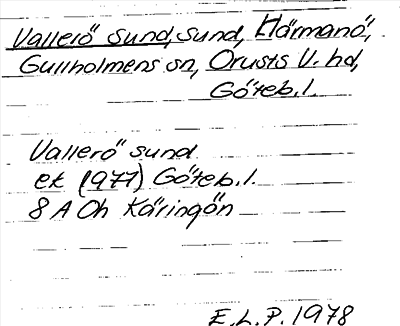 Vallerö sund, sund, Härmanö,
Gullholmens sn, Orusts V. hd,
Göteb. l.
Vallerö sund
ek (1977) Göteb. l.
8 A Oh Käringön
E. L. P. 1978